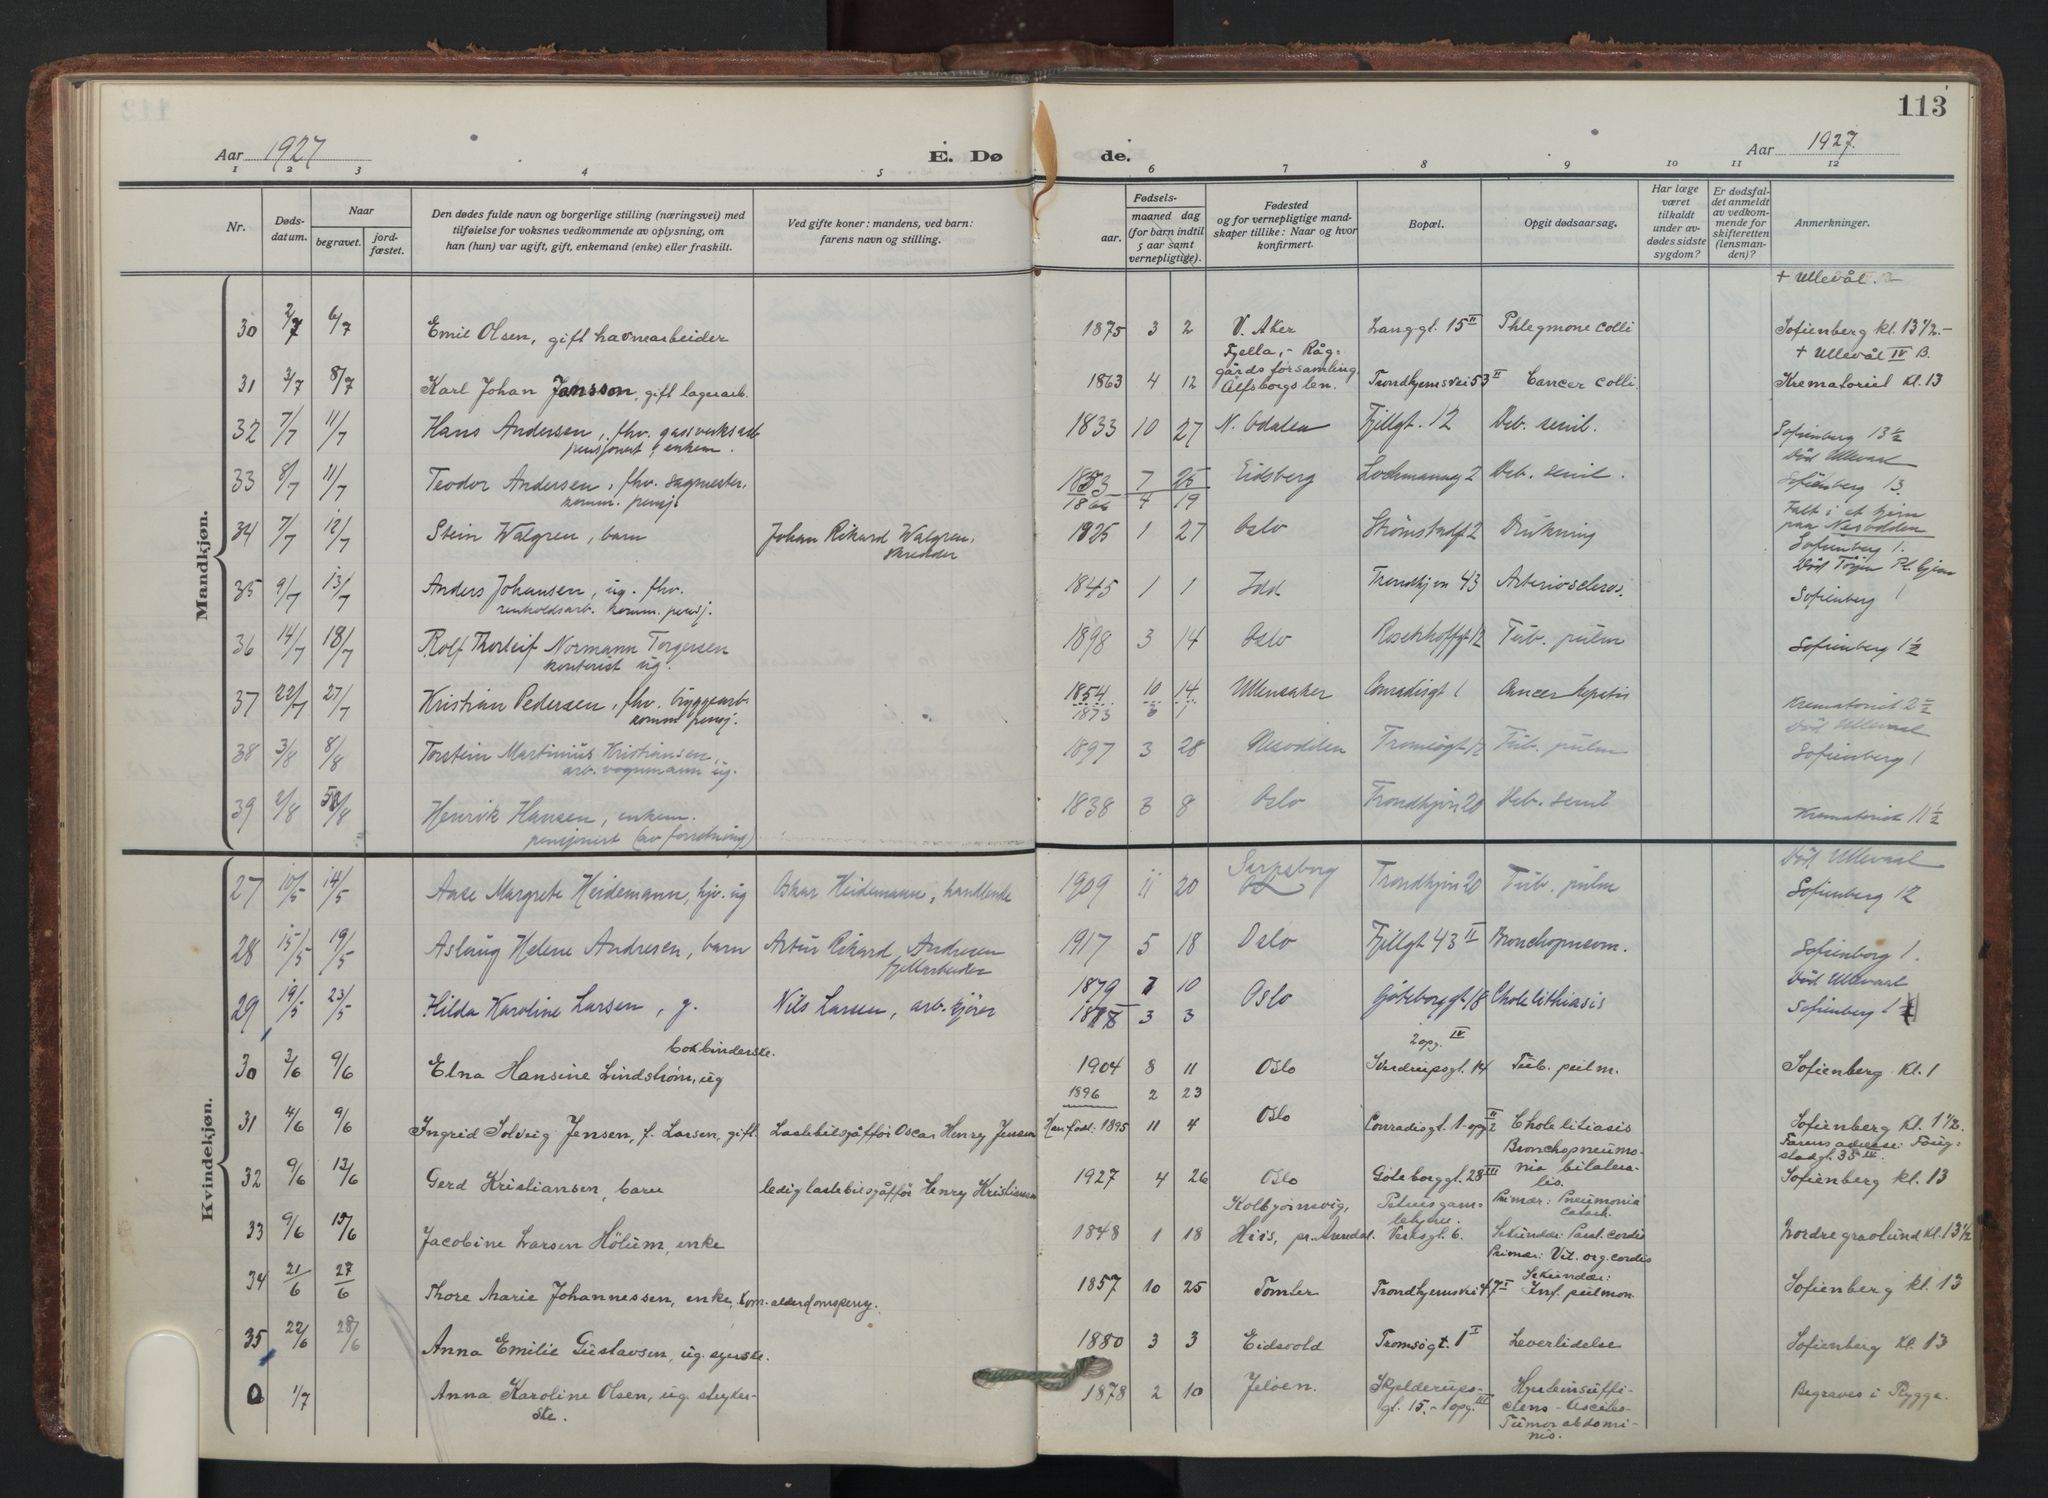 113
Aar 1927
E. Døde.
Aar 1927.
1 2 3 4 5 6 7 8 9 10 11 12
Nr.
Døds-datum.
Naar
begravet.
jord-fæstet.
Den dødes fulde navn og borgerlige stilling (næringsvei) med
tilføielse for voksnes vedkommende av oplysning, om
han (hun) var ugift, gift, enkemand (enke) eller fraskilt.
Ved gifte koner: mandens, ved barn:
farens navn og stilling.
Fødsels-
aar.
maaned
dag
(for barn indtil
5 aar samt
vernepligtige).
Fødested
og for vernepligtige mand-
skaper tillike: Naar og hvor
konfirmert.
Bopæl.
Opgit dødsaarsag.
Har læge
været
tilkaldt
under av-
dødes sidste
sygdom?
Er dødsfal-
det anmeldt
av vedkom-
mende for
skifteretten
(lensman-
den)?
Anmerkninger.
Mandkjøn.
+ Ullevål
30 2/7 6/7 Emil Olsen, gift havnearbeider 1875 3 2 V. Aker Langgt. 15 II Phlegmone colli Sofienberg kl. 13 1/2.-
+ Ullevål IV B.
31 3/7 8/7 Karl Johan Jansson, gift lagerarb. 1863 4 12 Fjella, - Råg-
gårds forsamling
Älfsborgs len. Trondhjemsvei 53 II Cancer colli. Krematoriet Kl. 13
32 7/7 11/7 Hans Andersen, fhv. gassverksarb
pensjonert, enkem. 1833 10 27 N. Odalen Fjellgt. 12 Deb. senil. Sofienberg 13 1/2
Död Ullevaal
33 8/7 11/7 Teodor Andersen, fhv. sagmester,
komm. pensj. 1853 7 25 Eidsberg Lochmannsg 2 Deb. senil. Sofienberg 13.
1866 4 19
Falt i et tjern
paa Nesodden
34 7/7 12/7 Stein Walgren, barn Johan Rikard Walgren,
skredder 1925 1 27 Oslo Strömstadgt 2 Drukning Sofienberg 1.
35 9/7 13/7 Anders Johansen, ug. fhv.
renholdsarb. komm. pensj. 1845 1 1 Idd Trondhjvn 43 Arterioscleros. Sofienberg 1
36 14/7 18/7 Rolf Thorleif Normann Torgersen
kontorist ug. 1898 3 14 Oslo Rosenhoffgt 12 Tub. pulm Sofienberg 1 1/2
37 22/7 27/7 Kristian Pedersen, fhv. byggearb.
komm pensj. 1854 10 14 Ullensaker Conradisgt 1 Cancer hepatis Krematoriet 2 1/2
1873 6 1
Död Ullevaal
38 3/8 8/8 Torstein Martinius Kristiansen,
arb. vognmann ug. 1897 3 28 Nesodden Tromsøgt 12 Tub. pulm Sofienberg 1
39 2/8 8/8 Henrik Hansen, enkem.
pensjonert (av forretning) 1838 3 8 Oslo Trondhjvn 20 Deb. senil Krematoriet 11 1/2
Kvindekjøn.
Död Ullevaal
27 10/5 14/5 Aase Margrete Heidemann, hjv. ug Oskar Heidemann, handlende 1909 11 20 Sarpsborg Trondhjvn 20 Tub. pulm Sofienberg 12
28 15/5 19/5 Aslaug Helene Andresen, barn Artur Rikard Andresen
fjellarbeider 1917 5 18 Oslo Fjellgt 43 II Bronchopneum. Sofienberg 1.
Död Ullevaal
29 19/5 23/5 Hilda Karoline Larsen, g. Nils Larsen, arb. kjörer 1879 7 10 Oslo Göteborggt 18 Cholelithiasis Sofienberg 1
1878 3 3
2 opg. IV
30 3/6 9/6 Elna Hansine Lindstrøm, ug bokbinderske. 1904 8 11 Oslo Sverdrupsgt. 14 Tub. pulm. Sofienberg Kl. 1
1896 2 23
31 4/6 9/6 Ingrid Solveig Jensen, f. Larsen, gift. Lastebilsjåffør Oscar Henry Jensen Han født. 1895 11 4 Oslo Conradisgt. 1 - opg 2 II Cholelitiasis Sofienberg Kl. 1 1/2.
Farens adresse: Foug-
stadgt. 35 III.
32 9/6 13/6 Gerd Kristiansen, barn ledig lastebilsjåffør Henry Kristiansen 1927 4 26 Oslo Göteborggt. 28 III Bronchopneumo-
nia bilatera-
lis. Sofienberg kl. 13
33 9/6 15/6 Jacobine Larsen Hölum, enke 1848 1 18 Kolbjørnsvig,
Hiis, pr. Arendal. Petrusgam-
lehjem.
Verksgt. 6. Primær: Pneumonia
catarrh.
Sekundær: Paral. cordis Nordre gravlund Kl. 13 1/2
34 21/6 27/6 Thore Marie Johannessen, enke, kom. alderdomspens. 1857 10 25 Tomter Trondhjemsvei 47 I Primær: Vit. org. cordis
Sekundær:
Inf. pulmon. Sofienberg kl. 13
35 22/6 28/6 Anna Emilie Gustavsen, ug. syerske. 1880 3 3 Eidsvold Tromsøgt. 1 I Leverlidelse Sofienberg Kl. 13
0 1/7 Anna Karoline Olsen, ug. stryker-
ske. 1878 2 10 Jeløen. Skjelderups-
gt. 15. - 1 opg. III Hjerteinsuffi-
ciens - Ascites-
Tumor abdomi-
nis. Begraves i Rygge.